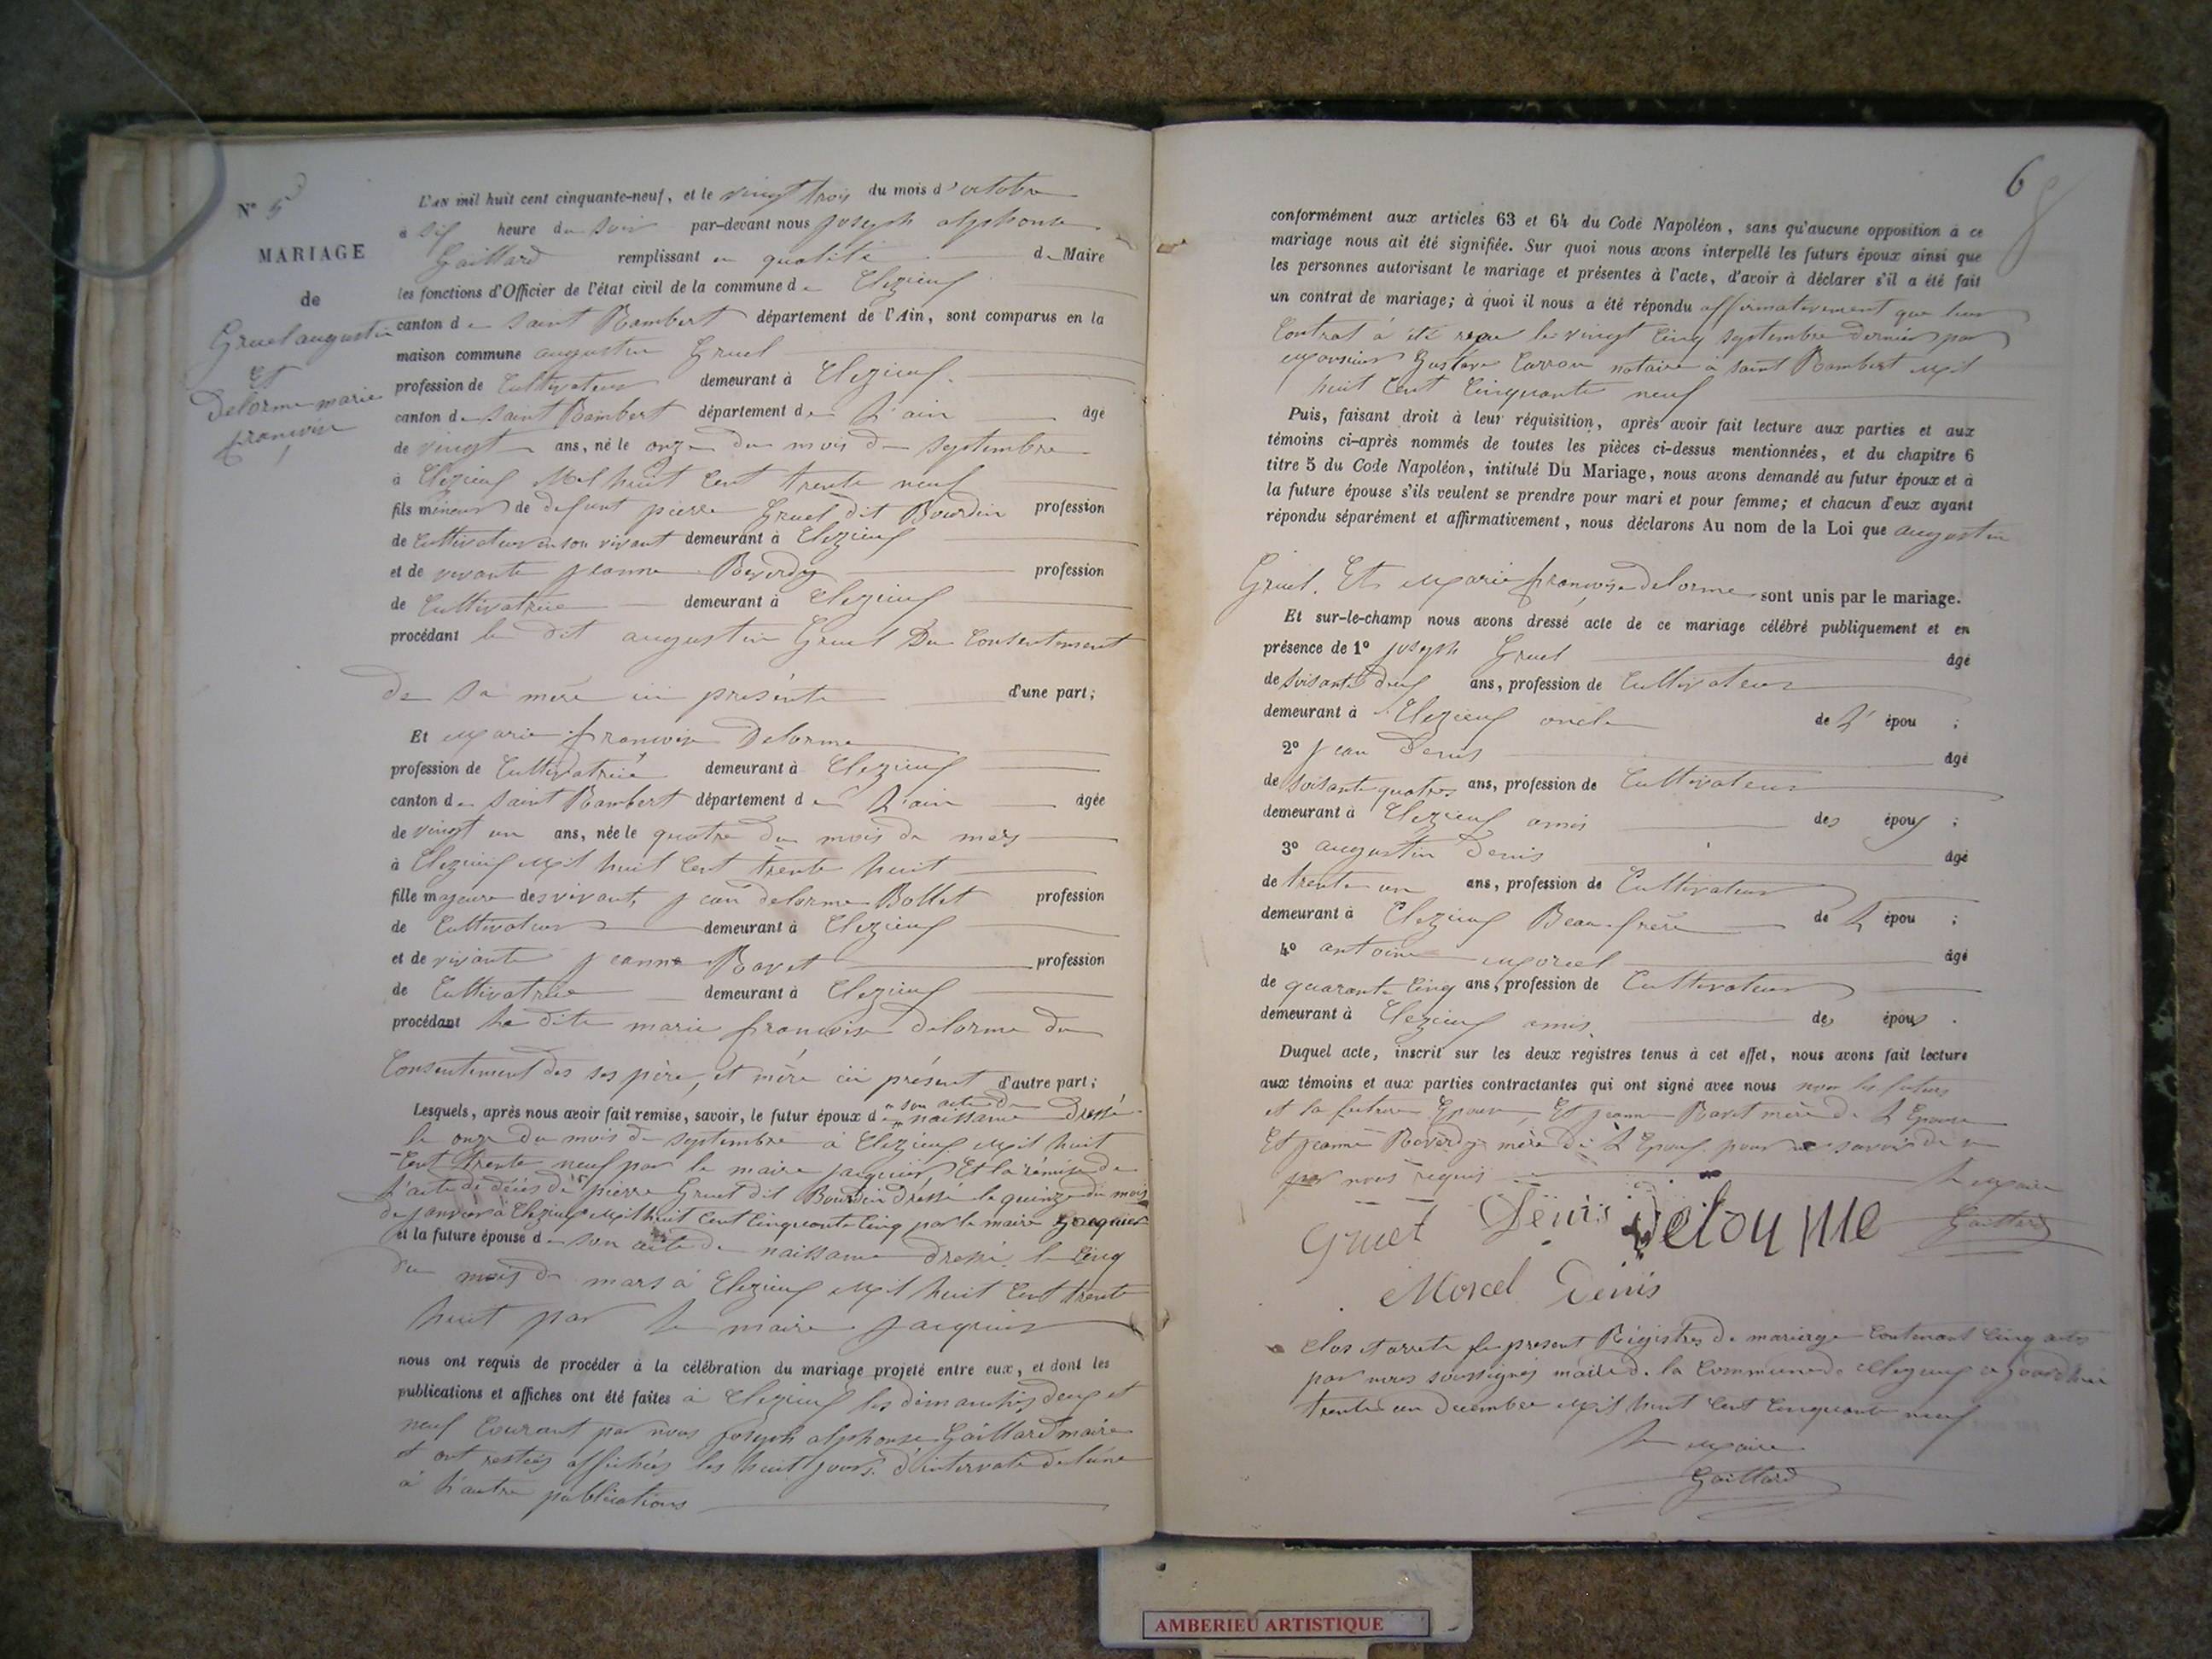 N° 5
MARIAGE
de
Gruel augustin
Et
Delorme marie
françoise
L'AN mil huit cent cinquante-neuf, et le vingt trois du mois d'octobre
a six heure du soir par-devant nous joseph alphonse
Gaillard remplissant en qualité de Maire
les fonctions d'Officier de l'état civil de la commune de Clezieux
canton de Saint Rambert département de l'Ain, sont comparus en la
maison commune augustin Gruel
profession de Cultivateur demeurant à Clezieux
canton de Saint Rambert département de L'ain âgé
de vingt ans, né le onze du mois de septembre
à Clezieux Mil huit Cent trente neuf
fils mineur de defunt pierre Gruel dit Bourdin profession
de Cultivateur en son vivant demeurant à Clezieux
et de vivante jeanne Reverdy profession
de Cultivatrice demeurant à Clezieux
procédant le dit augustin Gruel Du Consentement
de sa mère ici présente d'une part;
Et Marie françoise Delorme
profession de Cultivatrice demeurant à Clezieux
canton de Saint Rambert département de L'ain âgée
de vingt un ans, née le quatre du mois de mars
à Clezieux Mil huit Cent trente huit
fille majeure des vivant, jean delorme Bollet profession
de Cultivateur demeurant à Clezieux
et de vivante jeanne Ravet profession
de Cultivatrice demeurant à Clezieux
procédant La dite marie françoise delorme du
Consentement des ses père, et mère ici présent d'autre part;
Lesquels, après nous avoir fait remise, savoir, le futur époux de son acte de naissance Dressé
le onze du mois de septembre à Clezieux Mil huit
Cent trente neuf par le maire jacquier Et la remise de
L'acte de décès de pierre Gruel dit Bourdin dressé le quinze du mois
de janvier à Clezieux Mil huit Cent Cinquante Cinq par le maire jacquier
et la future épouse de son acte de naissance dressé le Cinq
du mois de mars à Clezieux Mil huit Cent trente
huit par le maire jacquier
nous ont requis de procéder à la célébration du mariage projeté entre eux, et dont les
publications et affiches ont été faites à Clezieux les dimanches deux et
neuf Courant par nous joseph alphonse Gaillard maire
et ont restées affichées les huit jours d'intervale de l'une
à L'autre publications
6
conformément aux articles 63 et 64 du Code Napoléon, sans qu'aucune opposition à ce
mariage nous ait été signifiée. Sur quoi nous avons interpellé les futurs époux ainsi que
les personnes autorisant le mariage et présentes à l'acte, d'avoir à déclarer s'il a été fait
un contrat de mariage; à quoi il nous a été répondu affirmativement que leur
Contrat à été reçu le vingt Cinq septembre dernier par
Monsieur Gustave notaire à saint Rambert Mil
huit Cent Cinquante neuf
Puis, faisant droit à leur réquisition, après avoir fait lecture aux parties et aux
témoins ci-après nommés de toutes les pièces ci-dessus mentionnées, et du chapitre 6
titre 5 du Code Napoléon, intitulé Du Mariage, nous avons demandé au futur époux et à
la future épouse s'ils veulent se prendre pour mari et pour femme; et chacun d'eux ayant
répondu séparément et affirmativement, nous déclarons Au nom de la Loi que augustin
Gruel. Et Marie françoise Delorme sont unis par le mariage.
Et sur-le-champ nous avons dressé acte de ce mariage célébré publiquement et en
présence de 1° joseph Gruel âgé
de soisante deux ans, profession de Cultivateur
demeurant à Clezieux oncle de L' épou ;
2° jean Denis âgé
de soisante quatres ans, profession de Cultivateur
demeurant à Clezieux amis des époux ;
3° augustin Denis âgé
de trente un ans, profession de Cultivateur
demeurant à Clezieux Beau-frère de L épou ;
4° antoine Morcel âgé
de quarante Cinq ans, profession de Cultivateur
demeurant à Clezieux amis des époux .
Duquel acte, inscrit sur les deux registres tenus à cet effet, nous avons fait lecture
aux témoins et aux parties contractantes qui ont signé avec nous non les futurs
et la future Epouse, Et jeanne Ravet mère de L Epouse
Et jeanne Reverdy mère de L Epoux pour ne savoir de ce
par nous requis
Le Maire
Gruel Denis Delorme Gaillard
Morcel Denis
Clos et arrete le present Régistres de mariage Contenant Cinq actes
par nous soussignés maire de la Commune de Clezieux ce jourd'hui
trente un Decembre Mil huit Cent Cinquante neuf
Le Maire
Gaillard
AMBERIEU ARTISTIQUE